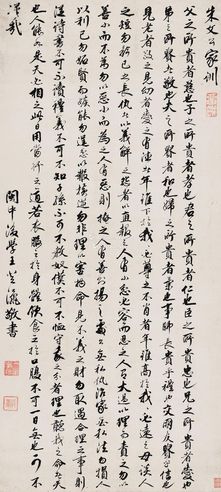 朱文公家訓
父之所貴者慈也子之所貴者孝也君之所貴者仁也臣之所貴者忠也兄之所貴者愛也
弟之所貴者敬也夫之所貴者和也婦之所貴者柔也事師長貴乎禮也交朋友貴乎信也
見老者敬之見幼者愛之有德者年雖下於我必尊之不肖者年雖高於我必遠之毋談人
之短勿矜己之長仇者以義解之怨者以直報之人有小過含容而忍之人有大過以理而責之勿以
善小而不為勿以惡小而為之人有惡則掩之人有善則揚之處公無私仇治家無私法勿損人
以利己勿妒賢而嫉能勿逞忿以報橫逆勿非理以害物命見不義之財勿取遇合理之事則
從詩書不可不讀禮義不可不知子孫不可不教奴僕不可不恤守我之分者理也聽我之命者天
也人能如是天必相之此日用常行之道若衣服之於身體飲食之於口腹不可一日無也可不
謹哉
閩中後學王芝敬書